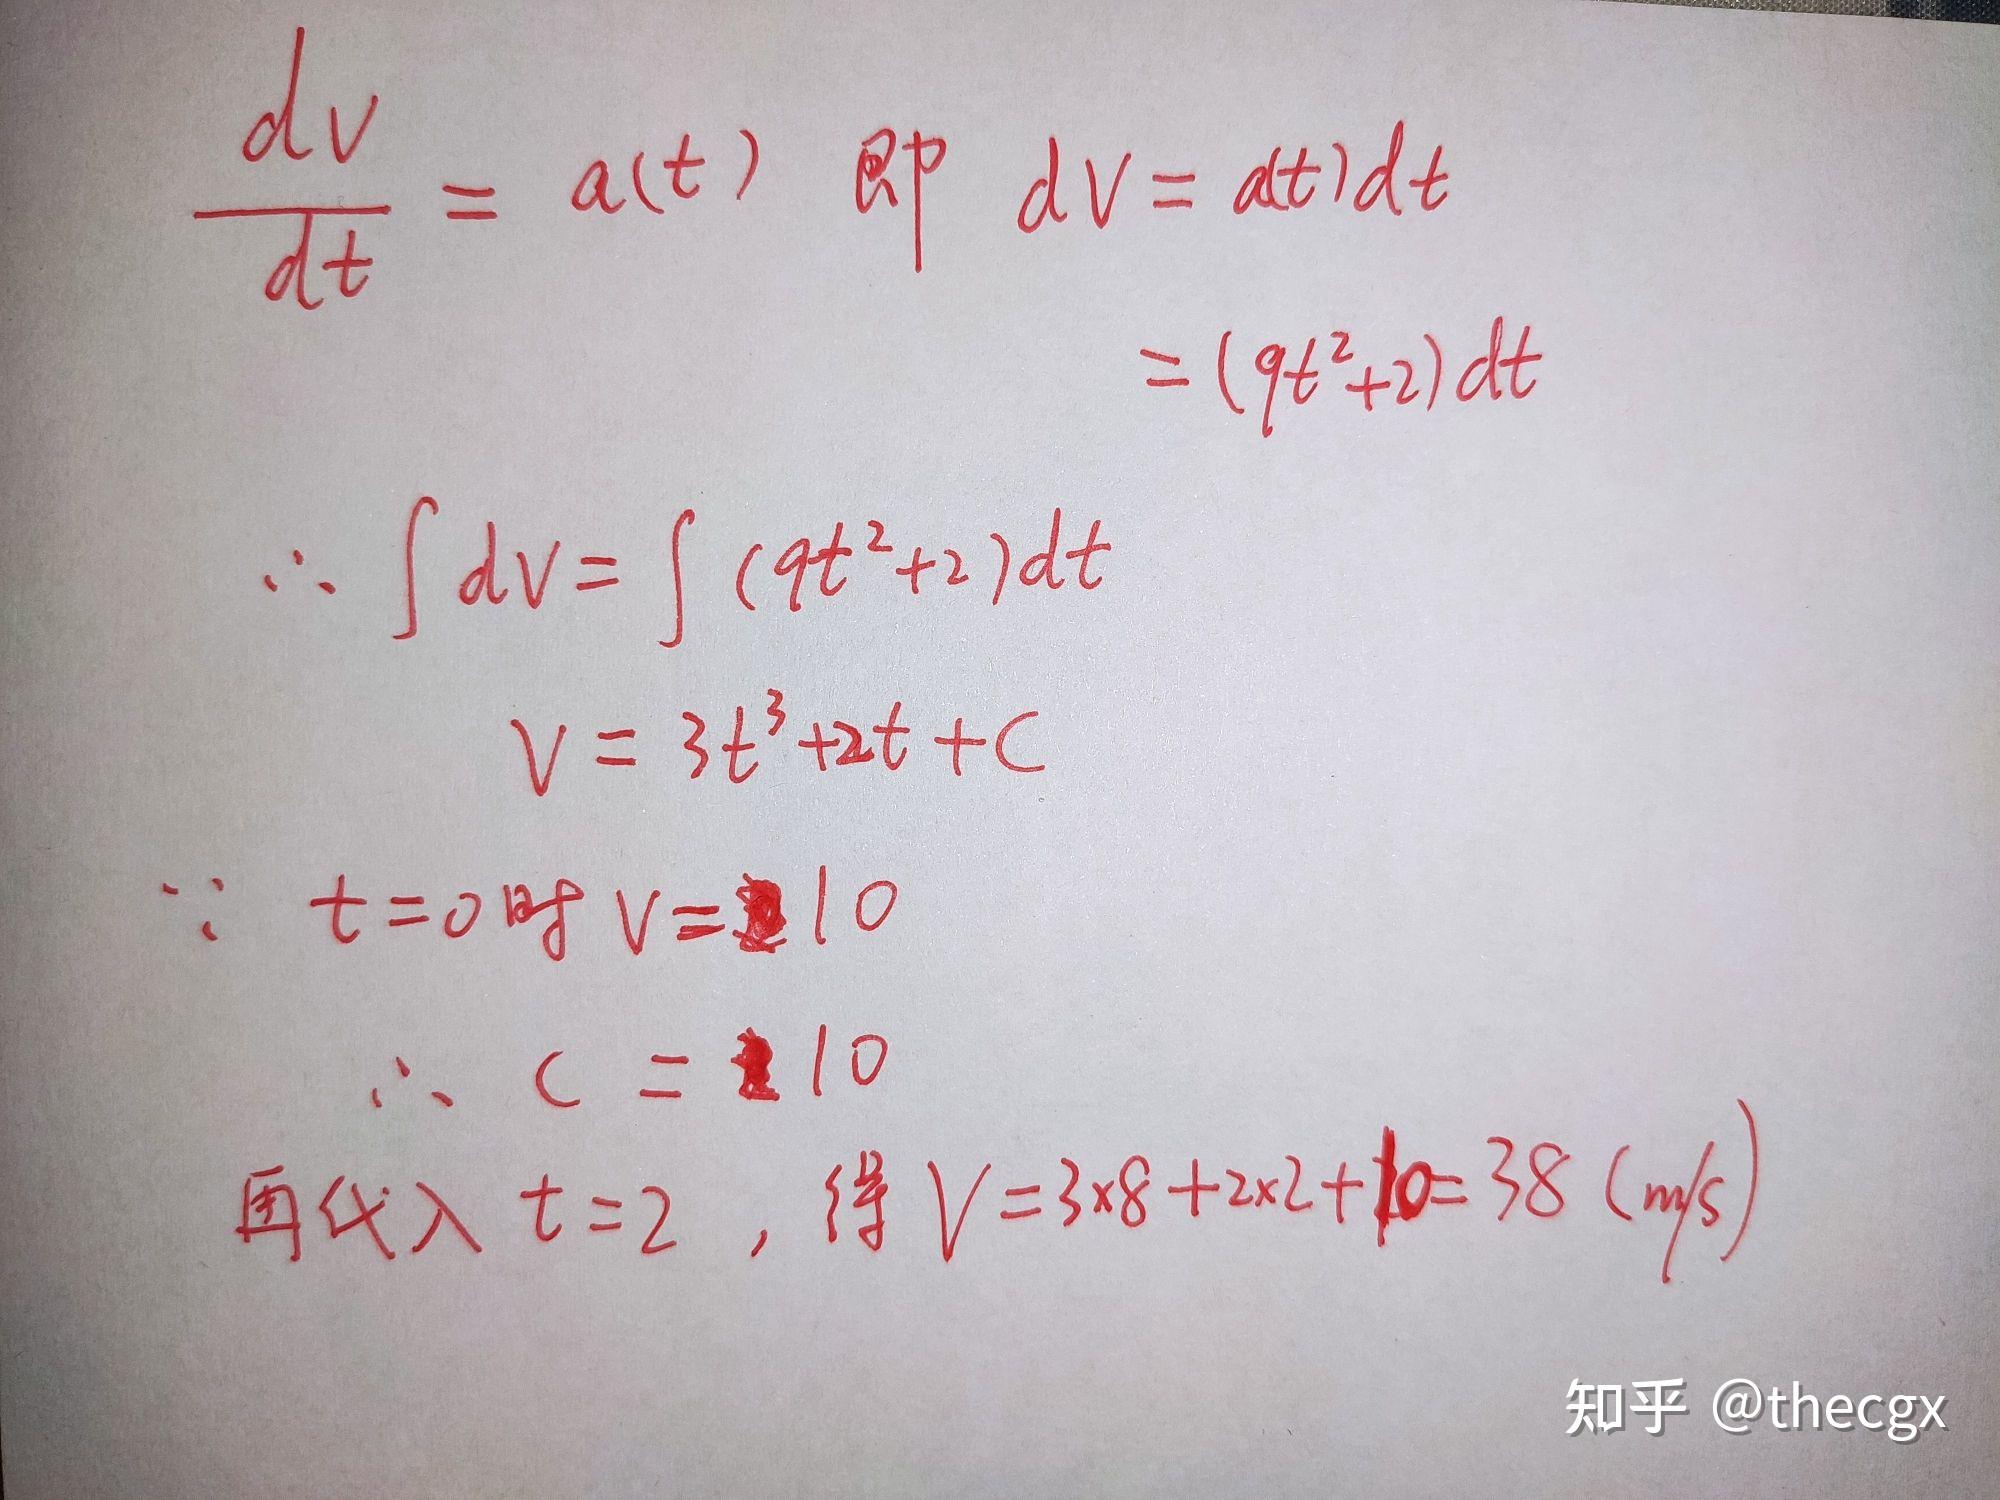 dv/dt = a(t) 即 dv = a(t)dt
= (9t²+2)dt
∴ ∫dv = ∫(9t²+2)dt
v = 3t³+2t+C
∵ t=0时 v=10
∴ C = 10
再代入 t=2, 得 V=3×8+2×2+10=38 (m/s)
知乎 @thecgx